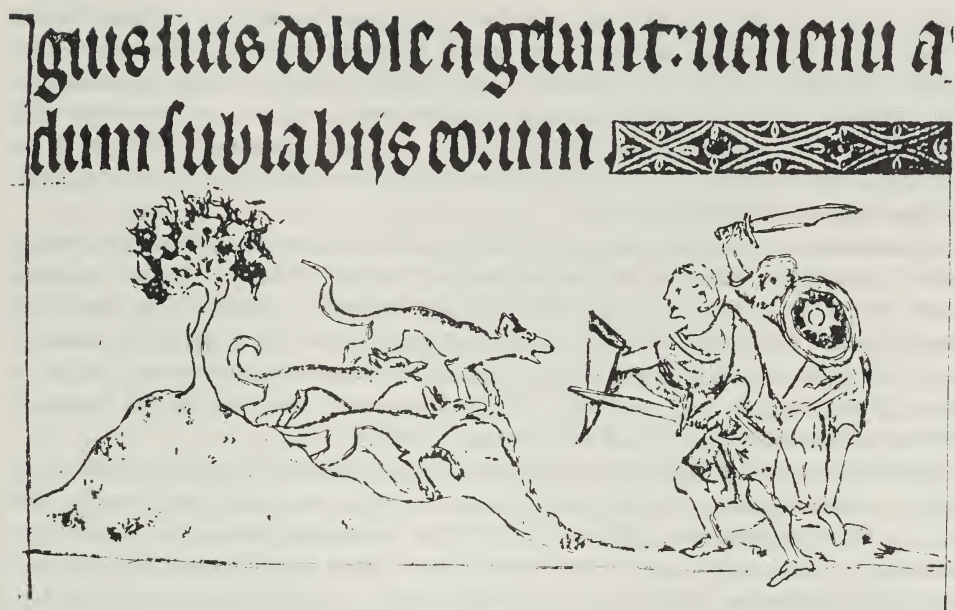 guis ſuis doloſe agebunt: uenenu a
dum ſub labijs eorum